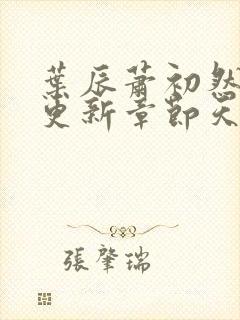 葉辰蕭初然
更新章節天
張肇瑞